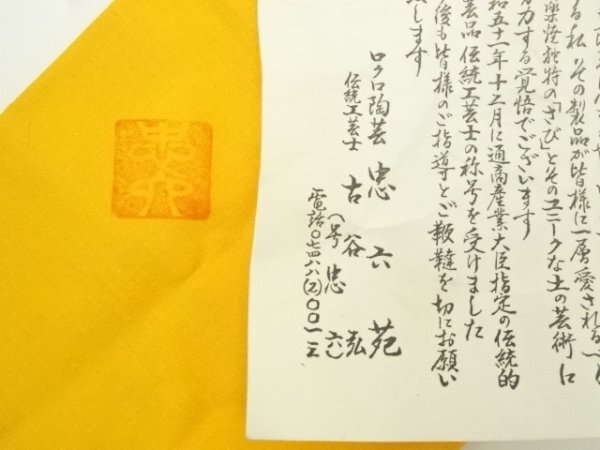 る私 その製品が皆様に一層愛される
楽焼独特の「さび」とそのユニークな土の芸術に
力する覚悟でございます
五十一年十二月に通商産業大臣指定の伝統的
芸品 伝統工芸士の称号を受けました
後も皆様のご指導とご鞭韃を切にお願い
します
ロクロ陶芸 忠六苑
伝統工芸士 古谷忠弘
(号忠六)
電話〇七四八八(二)〇〇一三
忠六